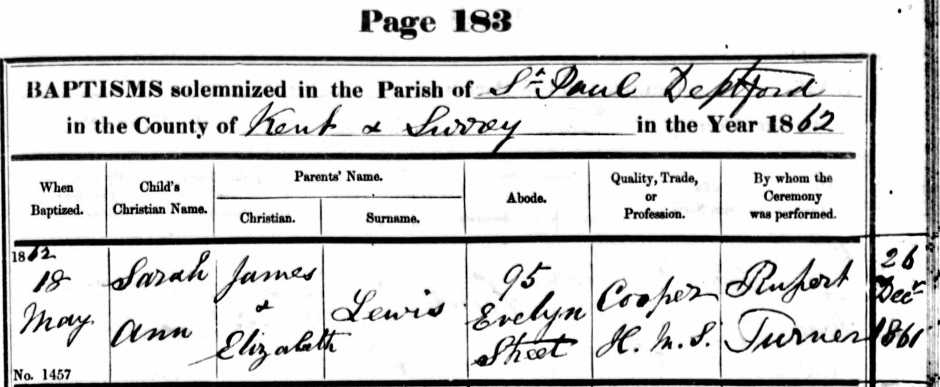 Page 183
BAPTISMS solemnized in the Parish of St Paul Deptford
in the County of Kent & Surrey in the Year 1862
When Baptized.
Child's Christian Name.
Parents' Name.
Christian.
Surname.
Abode.
Quality, Trade, or Profession.
By whom the Ceremony was performed.
1862
18
May
Sarah
Ann
James
&
Elizabeth
Lewis
95
Evelyn
Street
Cooper
H. M. S.
Rupert
Turner
26
Decr
1861
No. 1457